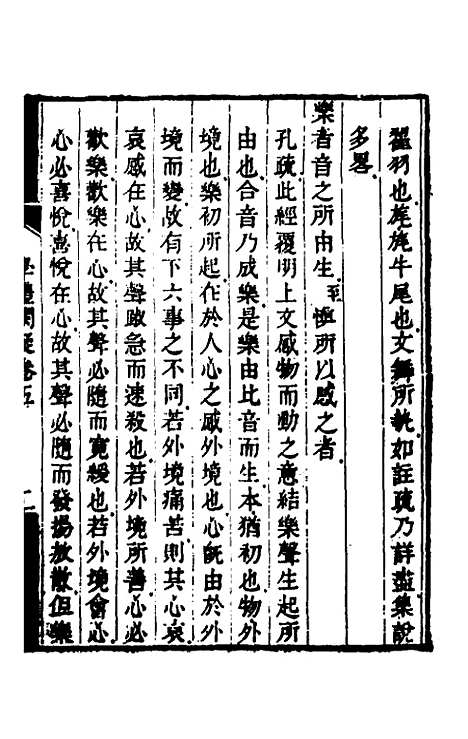 翟羽也旄旄牛尾也文舞所執如註疏乃詳盡集說
多畧
樂者音之所由生至慎所以感之者
孔疏此經覆明上文感物而動之意結樂聲生起所
由也合音乃成樂是樂由比音而生本猶初也物外
境也樂初所起在於人心之感外境也心既由於外
境而變故有下六事之不同若外境痛苦則其心哀
哀感在心故其聲踧急而速殺也若外境所善心必
歡樂歡樂在心故其聲必隨而寬緩也若外境會心
心必喜悅喜悅在心故其聲必隨而發揚放散但樂
禮闕疑卷五
二